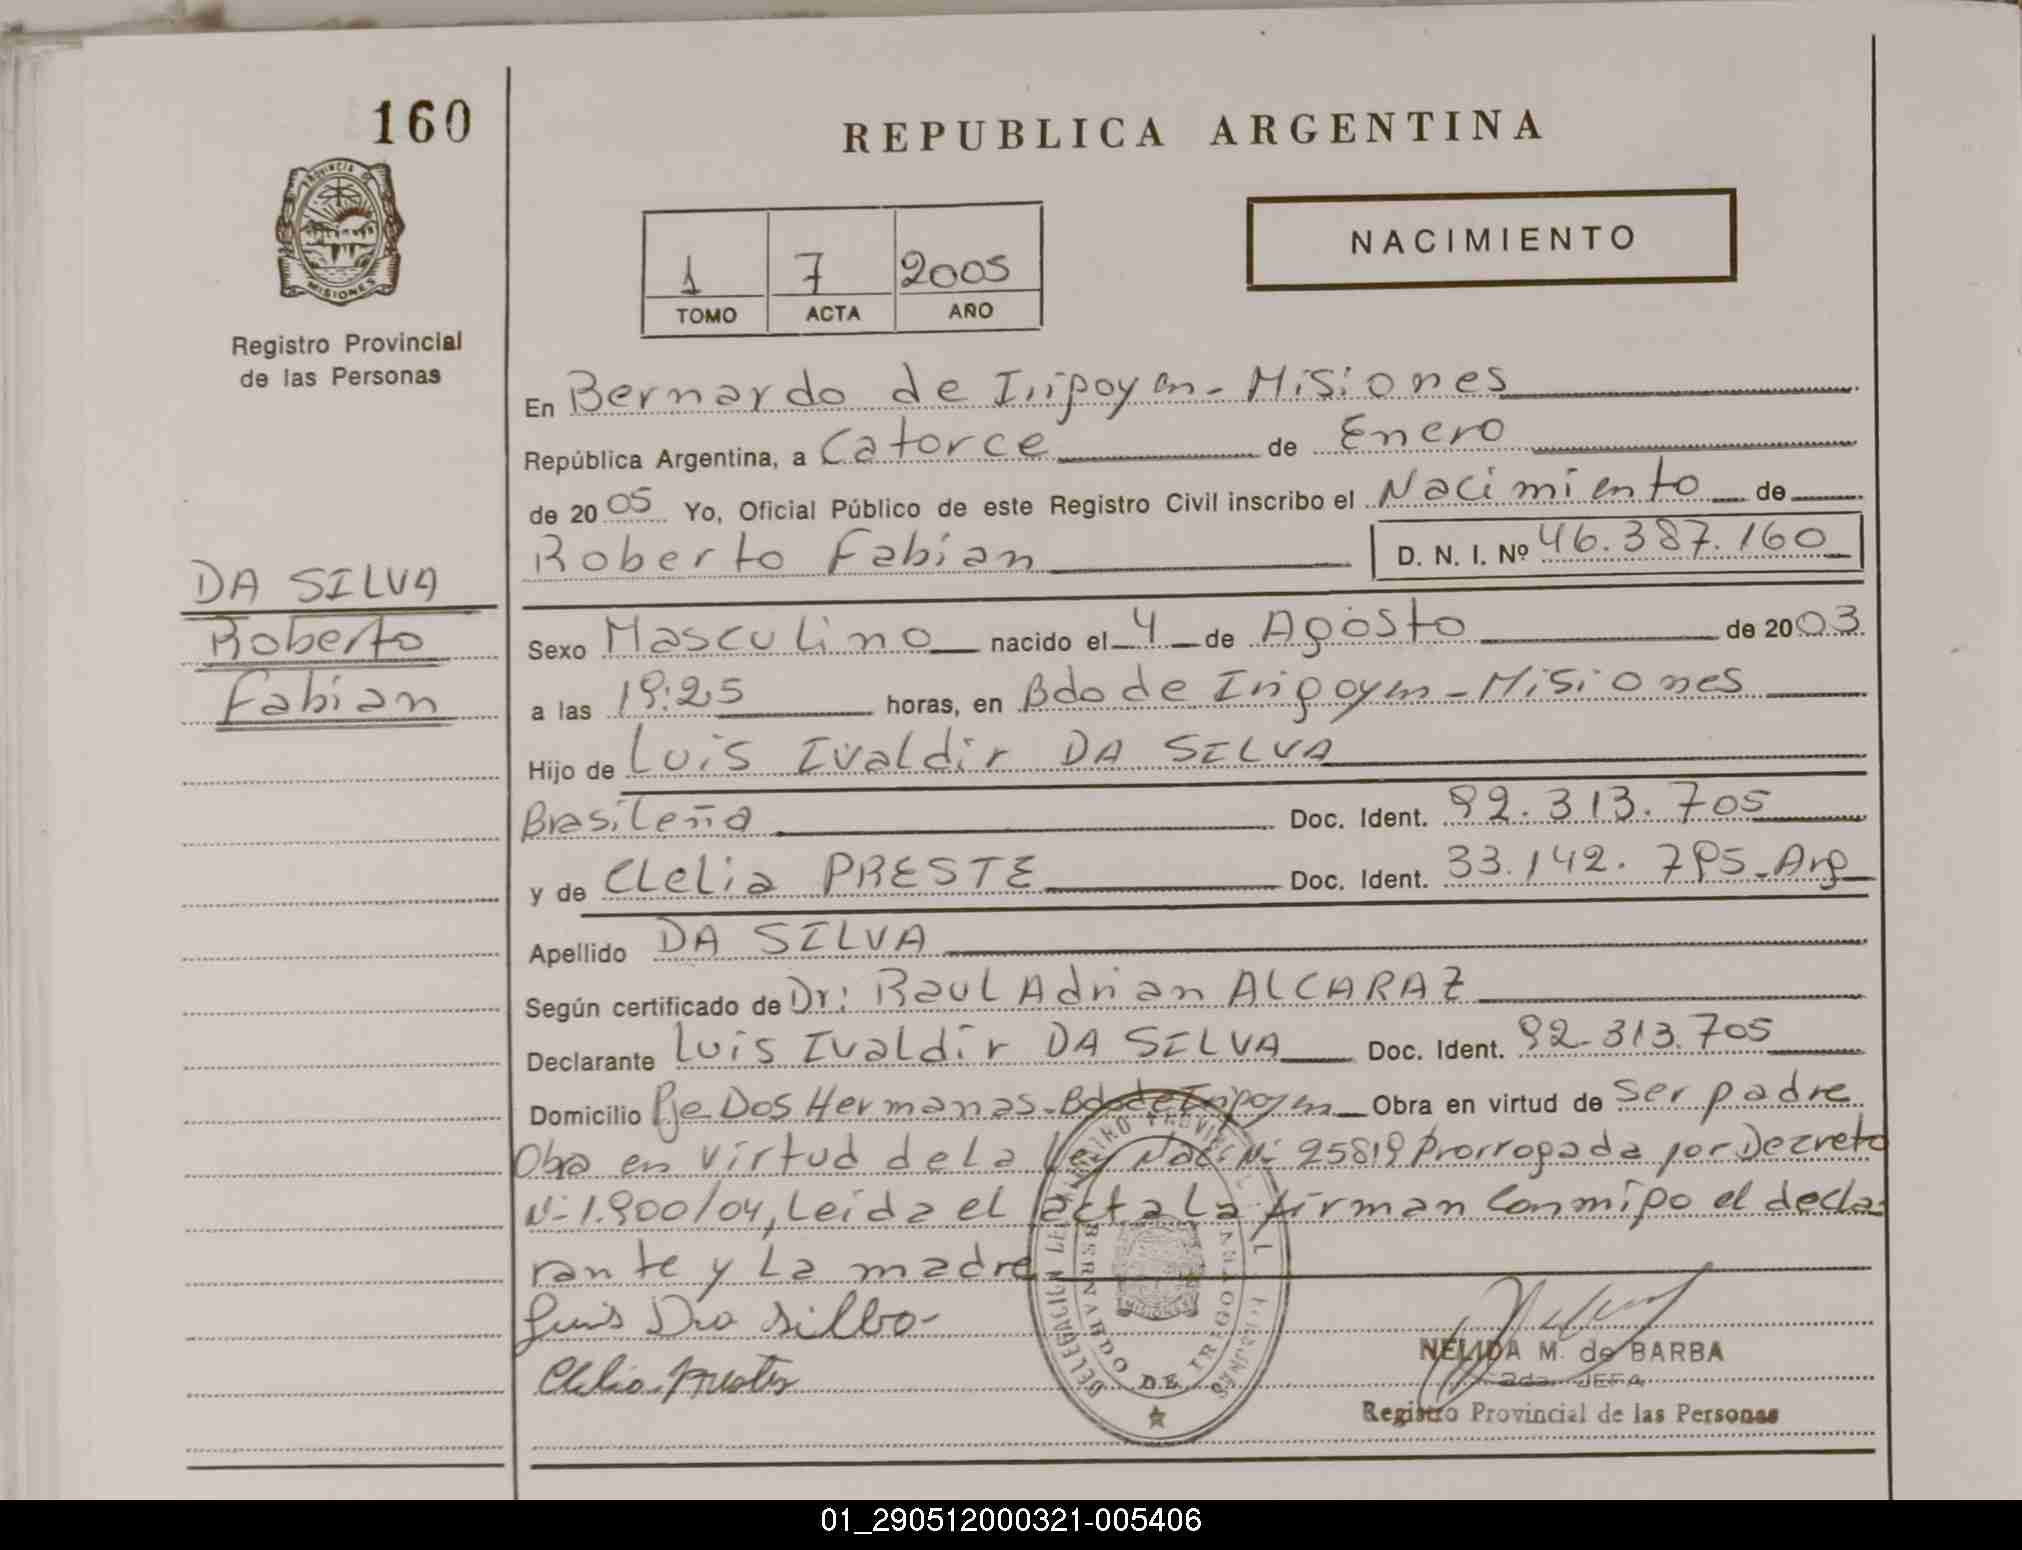 160
REPUBLICA ARGENTINA
PROVINCIA DE
MISIONES
NACIMIENTO
1 7 2005
TOMO ACTA AÑO
Registro Provincial
de las Personas
En Bernardo de Irigoyen - Misiones
República Argentina, a Catorce de Enero
de 2005 Yo, Oficial Público de este Registro Civil inscribo el Nacimiento de
Roberto Fabian D. N. I. Nº 46.387.160
DA SILVA
Roberto
Fabian
Sexo Masculino nacido el 4 de Agosto de 2003
a las 19:25 horas, en Bdo de Irigoyen - Misiones
Hijo de Luis Ivaldir DA SILVA
Brasileña Doc. Ident. 92.313.705
y de Clelia PRESTE Doc. Ident. 33.142.795-Arg
Apellido DA SILVA
Según certificado de Dr: Raul Adrian ALCARAZ
Declarante Luis Ivaldir DA SILVA Doc. Ident. 92-313.705
Domicilio Pje Dos Hermanas-Bdo de Irigoyen Obra en virtud de ser padre
Obra en virtud de la Ley Nac. Nº 25819 Prorrogada por Decreto
Nº 1.900/04, Leida el acta La firman Conmigo el decla-
rante y La madre
Luis Da Silba
Clelia Prestes
DELEGACION DE
BERNARDO DE IRIGOYEN
MISIONES
NELIDA M. de BARBA
2da. JEFA
Registro Provincial de las Personas
01_290512000321-005406